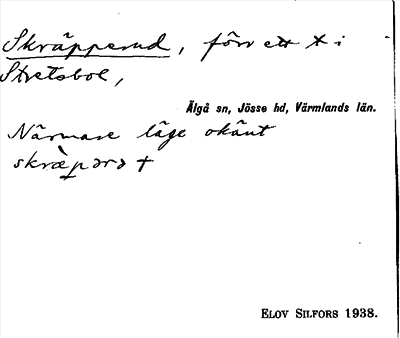 Skräpperud, förr ett x i
Stretsbol,
Älgå sn, Jösse hd, Värmlands län.
Närmare läge okänt
skræ̀pərə †
ELOV SILFORS 1938.